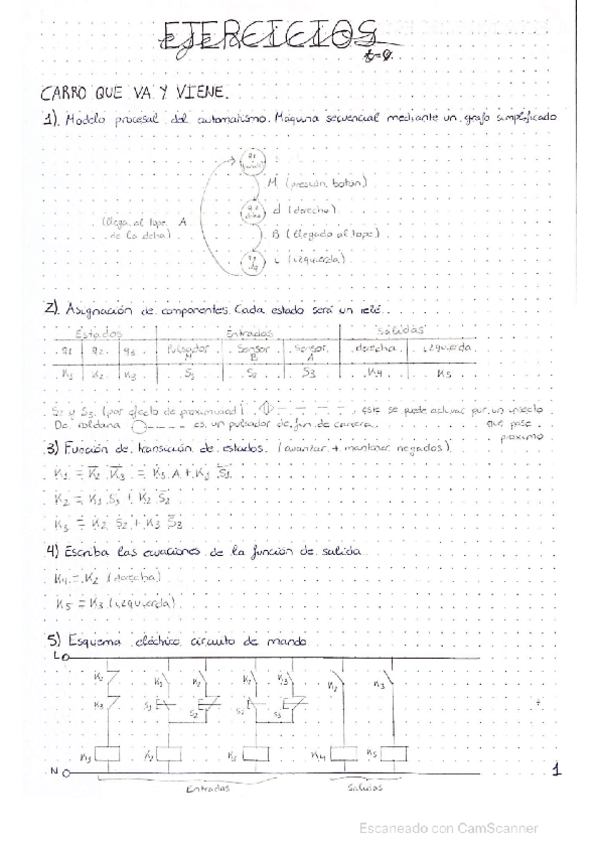 EJERCICIOS
t=0.
CARRO QUE VA Y VIENE.
1). Modelo procesal del automatismo. Máquina secuencial mediante un grafo simplificado
q1
M (presión botón)
q2
d (derecha)
(llega al tope A
de la dcha)
B (llegado al tope)
q3
i (izquierda)
2). Asignación de componentes. Cada estado será un relé.
Estados Entradas Salidas
q1 q2 q3 Pulsador M Sensor B Sensor A derecha izquierda
K1 K2 K3 S1 S2 S3 K4 K5
S2 y S3 (por efecto de proximidad) este se puede activar por un
que pase
De roldana es un pulsador de fin de carrera.
próximo
3) Función de transición de estados. (avanzar + mantener negados)
K1 = K̅2 K̅3 = K3 . A + K1 S̅1
K2 = K1 S1 + K2 S̅2
K3 = K2 S2 + K3 S̅3
4) Escriba las ecuaciones de la función de salida
K4 = K2 (derecha)
K5 = K3 (izquierda)
5) Esquema eléctrico circuito de mando
L
K2 K1 K2 K2 K3 K2 K3
K3 S1 S2 S2 S3
K1 K2 K3 K4 K5
N
1
Entradas Salidas
Escaneado con CamScanner